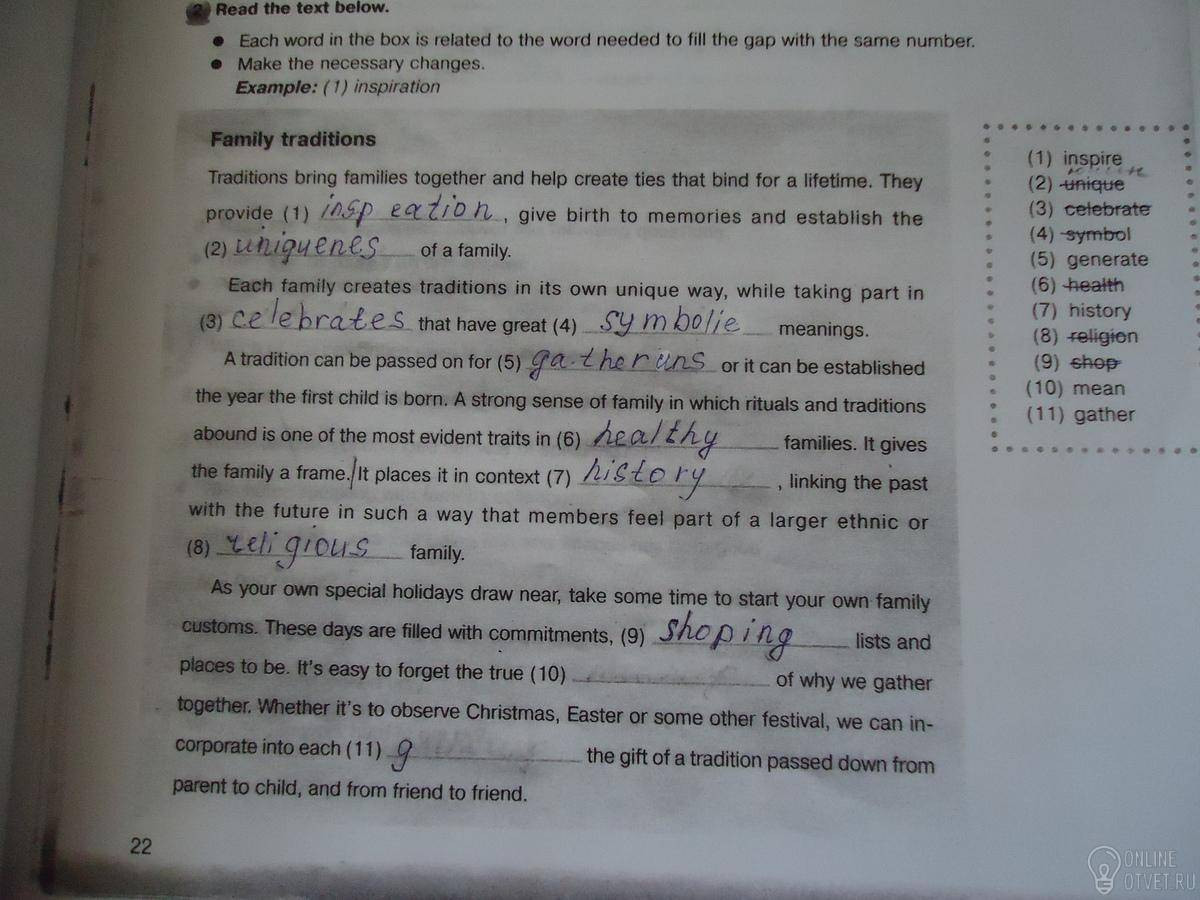 2 Read the text below.
● Each word in the box is related to the word needed to fill the gap with the same number.
● Make the necessary changes.
Example: (1) inspiration
Family traditions
Traditions bring families together and help create ties that bind for a lifetime. They
provide (1) inspeation, give birth to memories and establish the
(2) uniquenes of a family.
Each family creates traditions in its own unique way, while taking part in
(3) celebrates that have great (4) symbolie meanings.
A tradition can be passed on for (5) gatheruns or it can be established
the year the first child is born. A strong sense of family in which rituals and traditions
abound is one of the most evident traits in (6) healthy families. It gives
the family a frame. It places it in context (7) history, linking the past
with the future in such a way that members feel part of a larger ethnic or
(8) religious family.
As your own special holidays draw near, take some time to start your own family
customs. These days are filled with commitments, (9) shoping lists and
places to be. It's easy to forget the true (10) of why we gather
together. Whether it's to observe Christmas, Easter or some other festival, we can in-
corporate into each (11) g the gift of a tradition passed down from
parent to child, and from friend to friend.
22
(1) inspire
(2) unique
(3) celebrate
(4) symbol
(5) generate
(6) health
(7) history
(8) religion
(9) shop
(10) mean
(11) gather
ONLINE
OTVET.RU